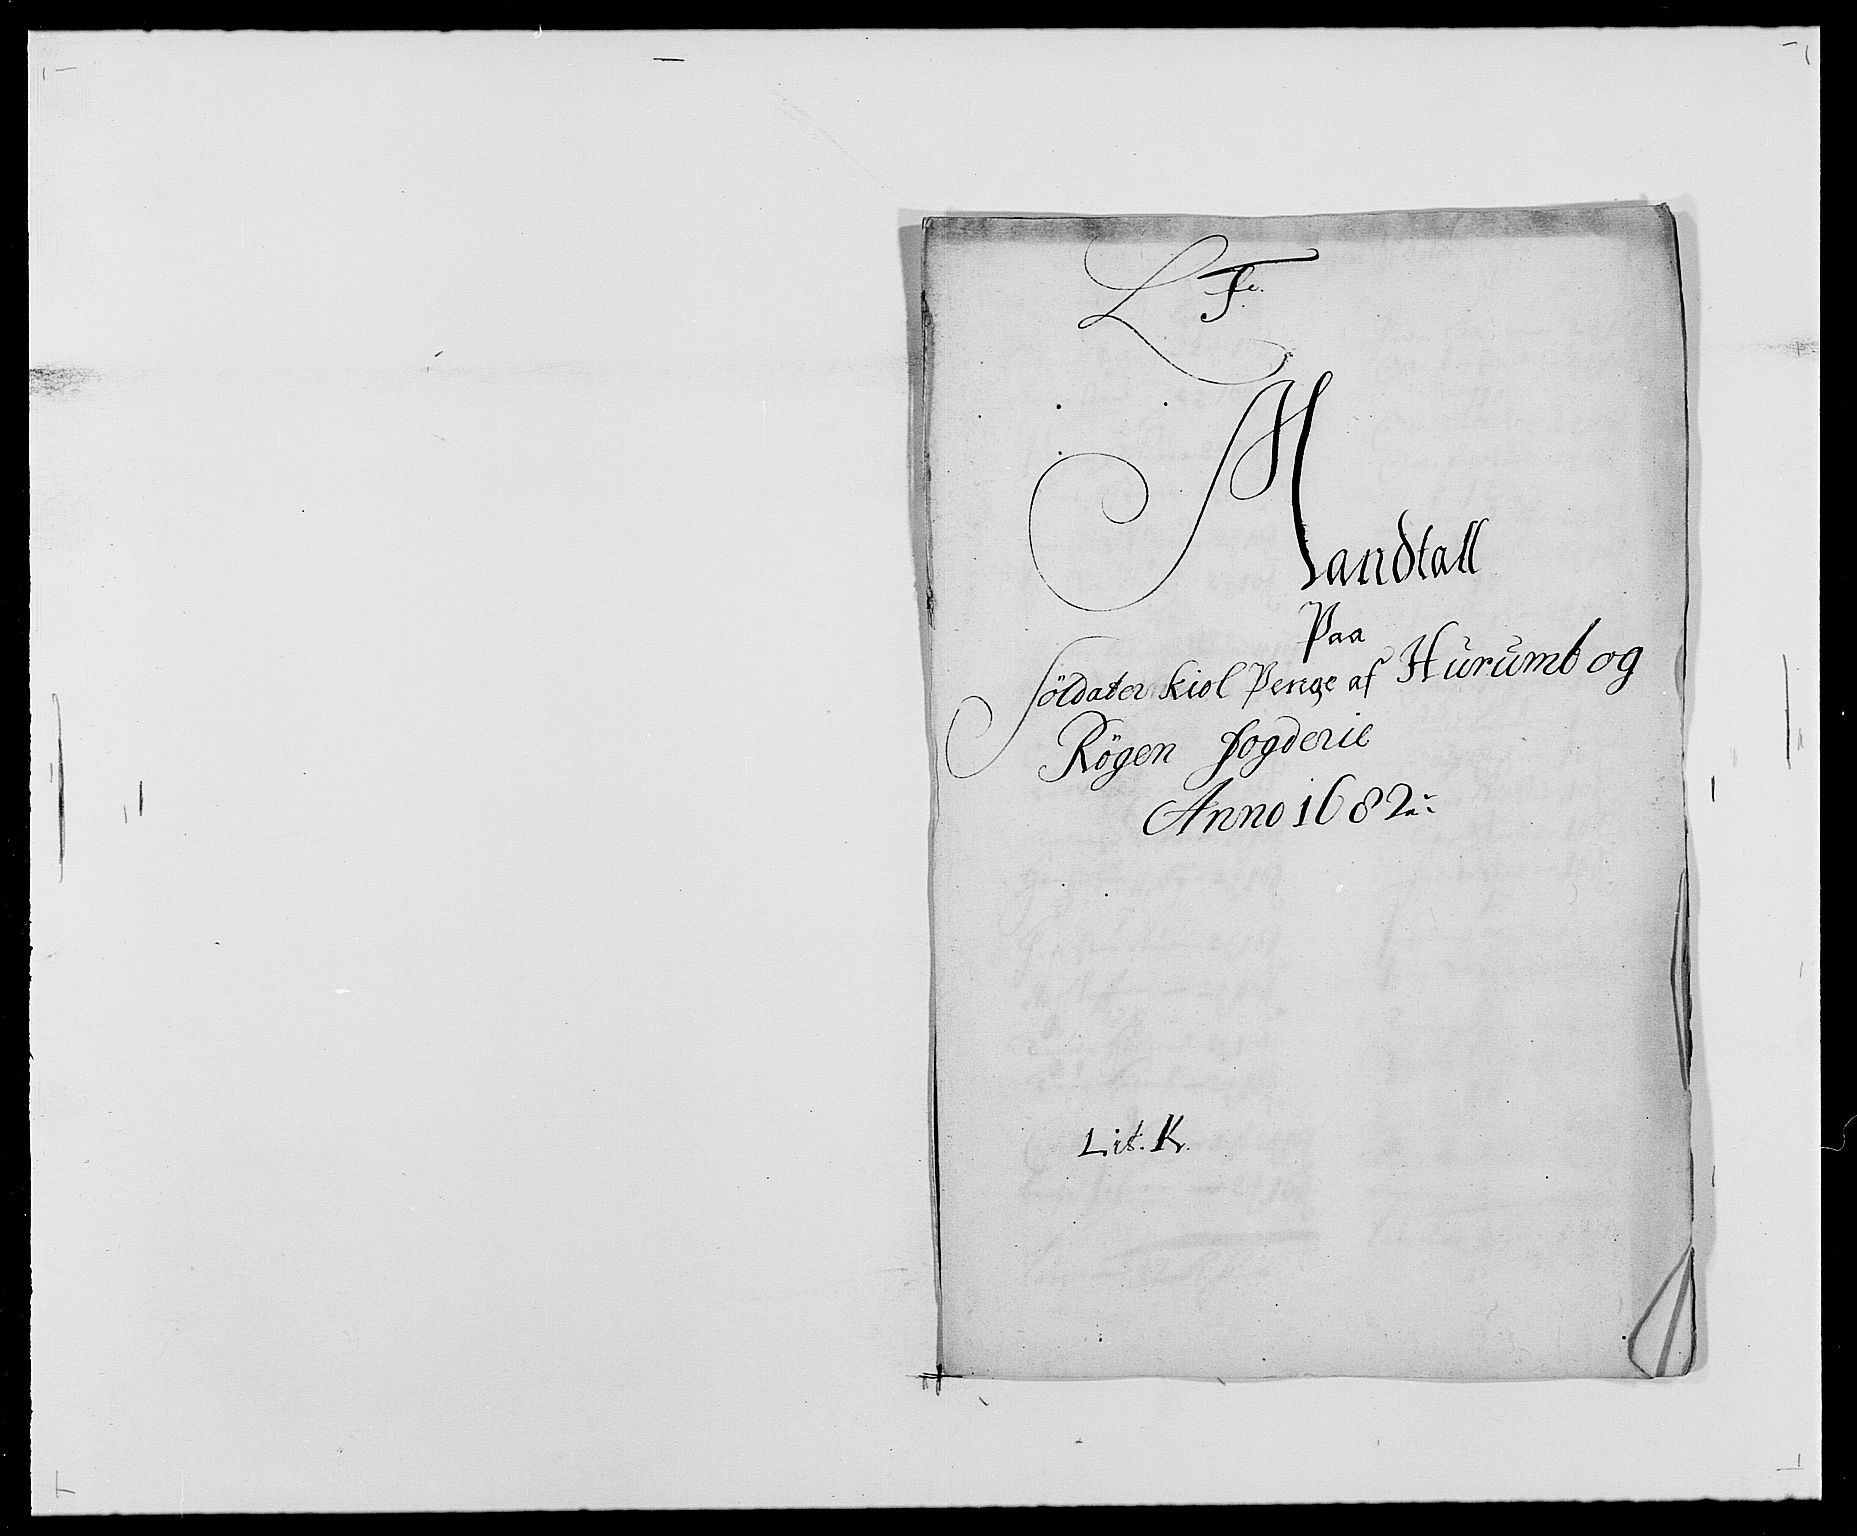 Mandtall
Paa
Söldater kiol Penge af Hurumb og
Rögen fogderie
Anno 1682
Lit. K.